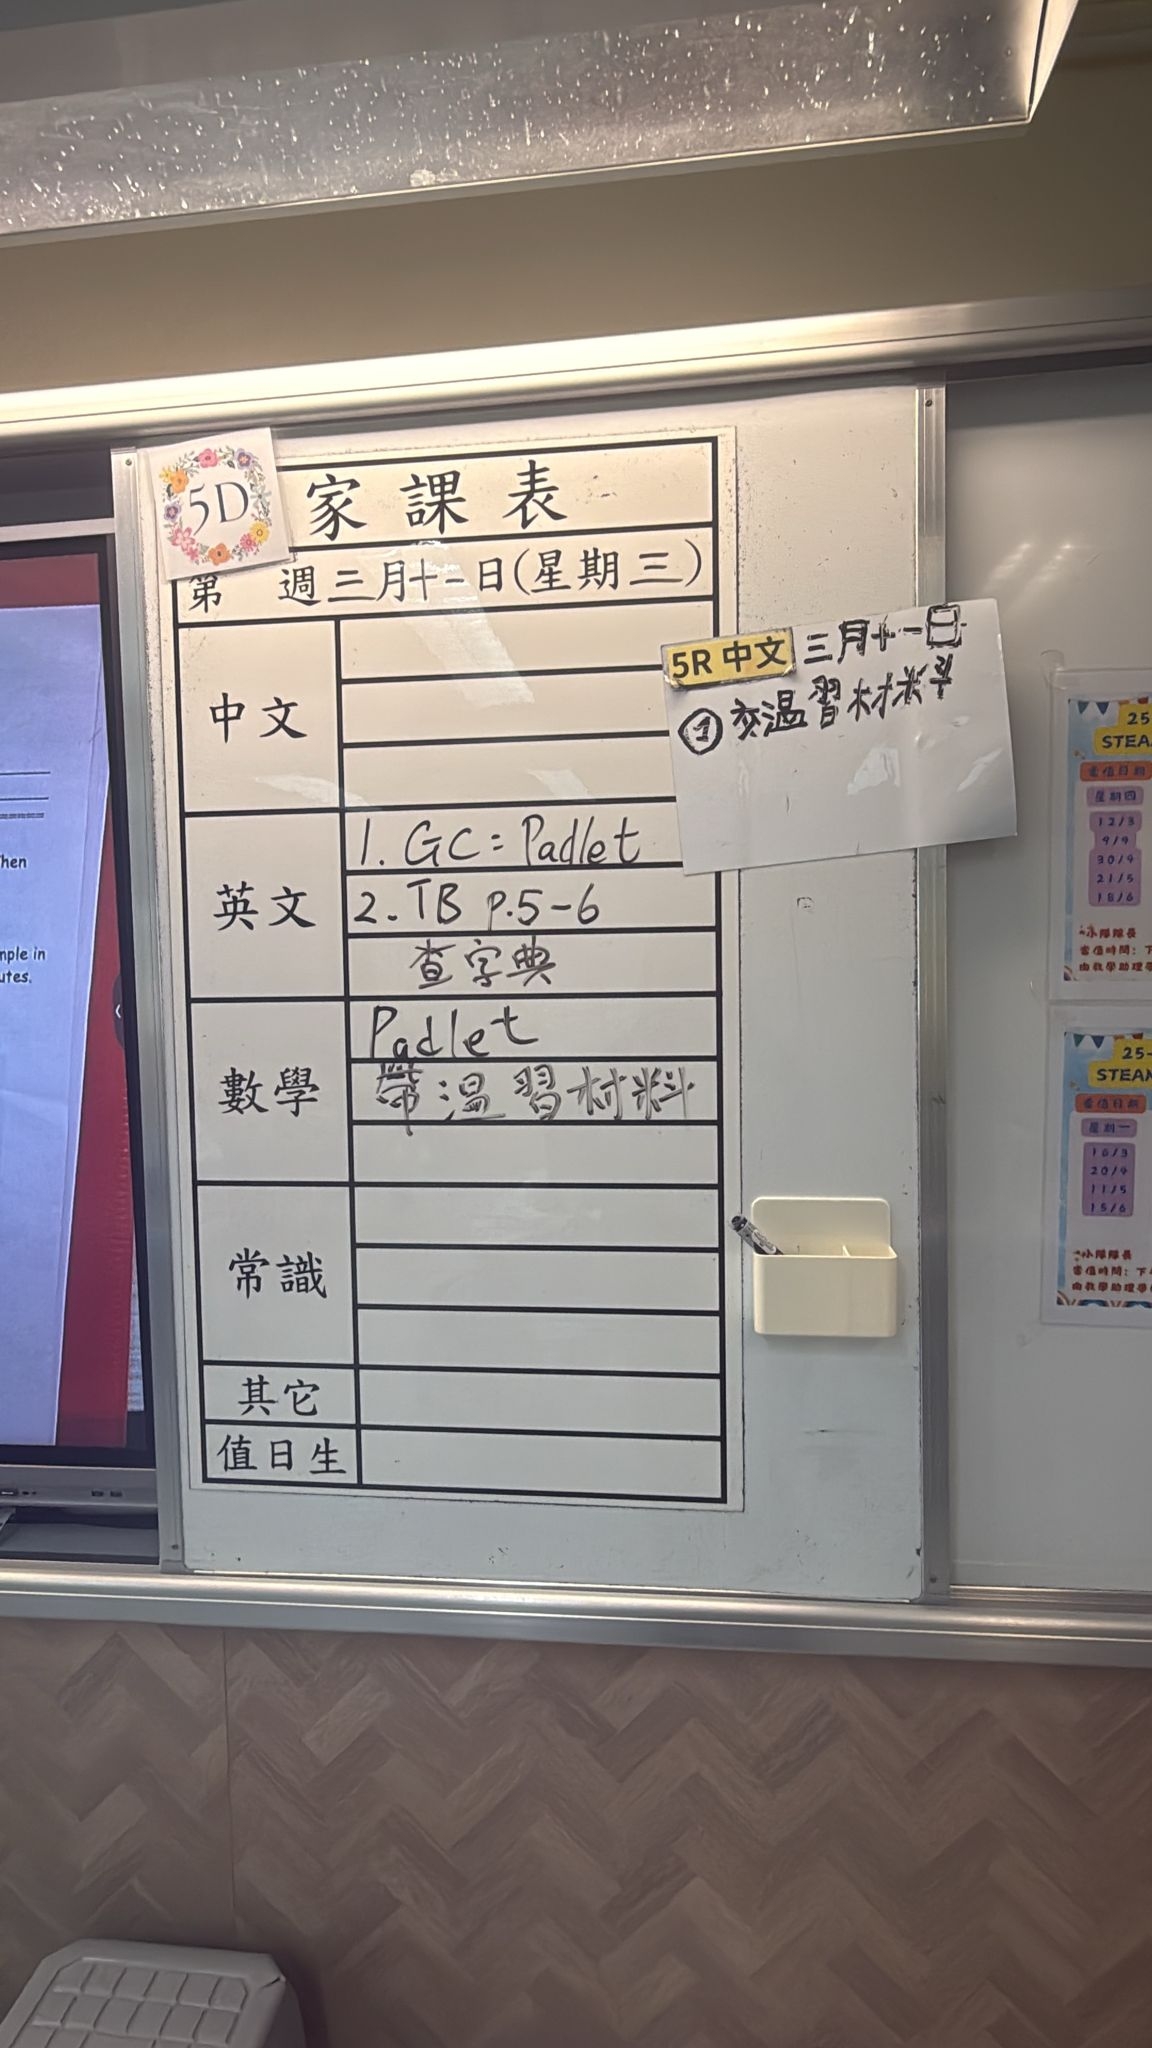 5D
家課表
第 週三月十一日(星期三)
5R 中文 三月十一日
① 交溫習材料
中文
英文
1. GC: Padlet
2. TB p.5-6
查字典
數學
Padlet
帶溫習材料
常識
其它
值日生
hen
mple in
utes.
25
STEA
當值日期
星期四
12/3
9/4
30/4
21/5
18/6
小隊隊長
當值時間：下
由教學助理
25-
STEAM
當值日期
星期一
16/3
20/4
11/5
15/6
小隊隊長
當值時間：下
由教學助理